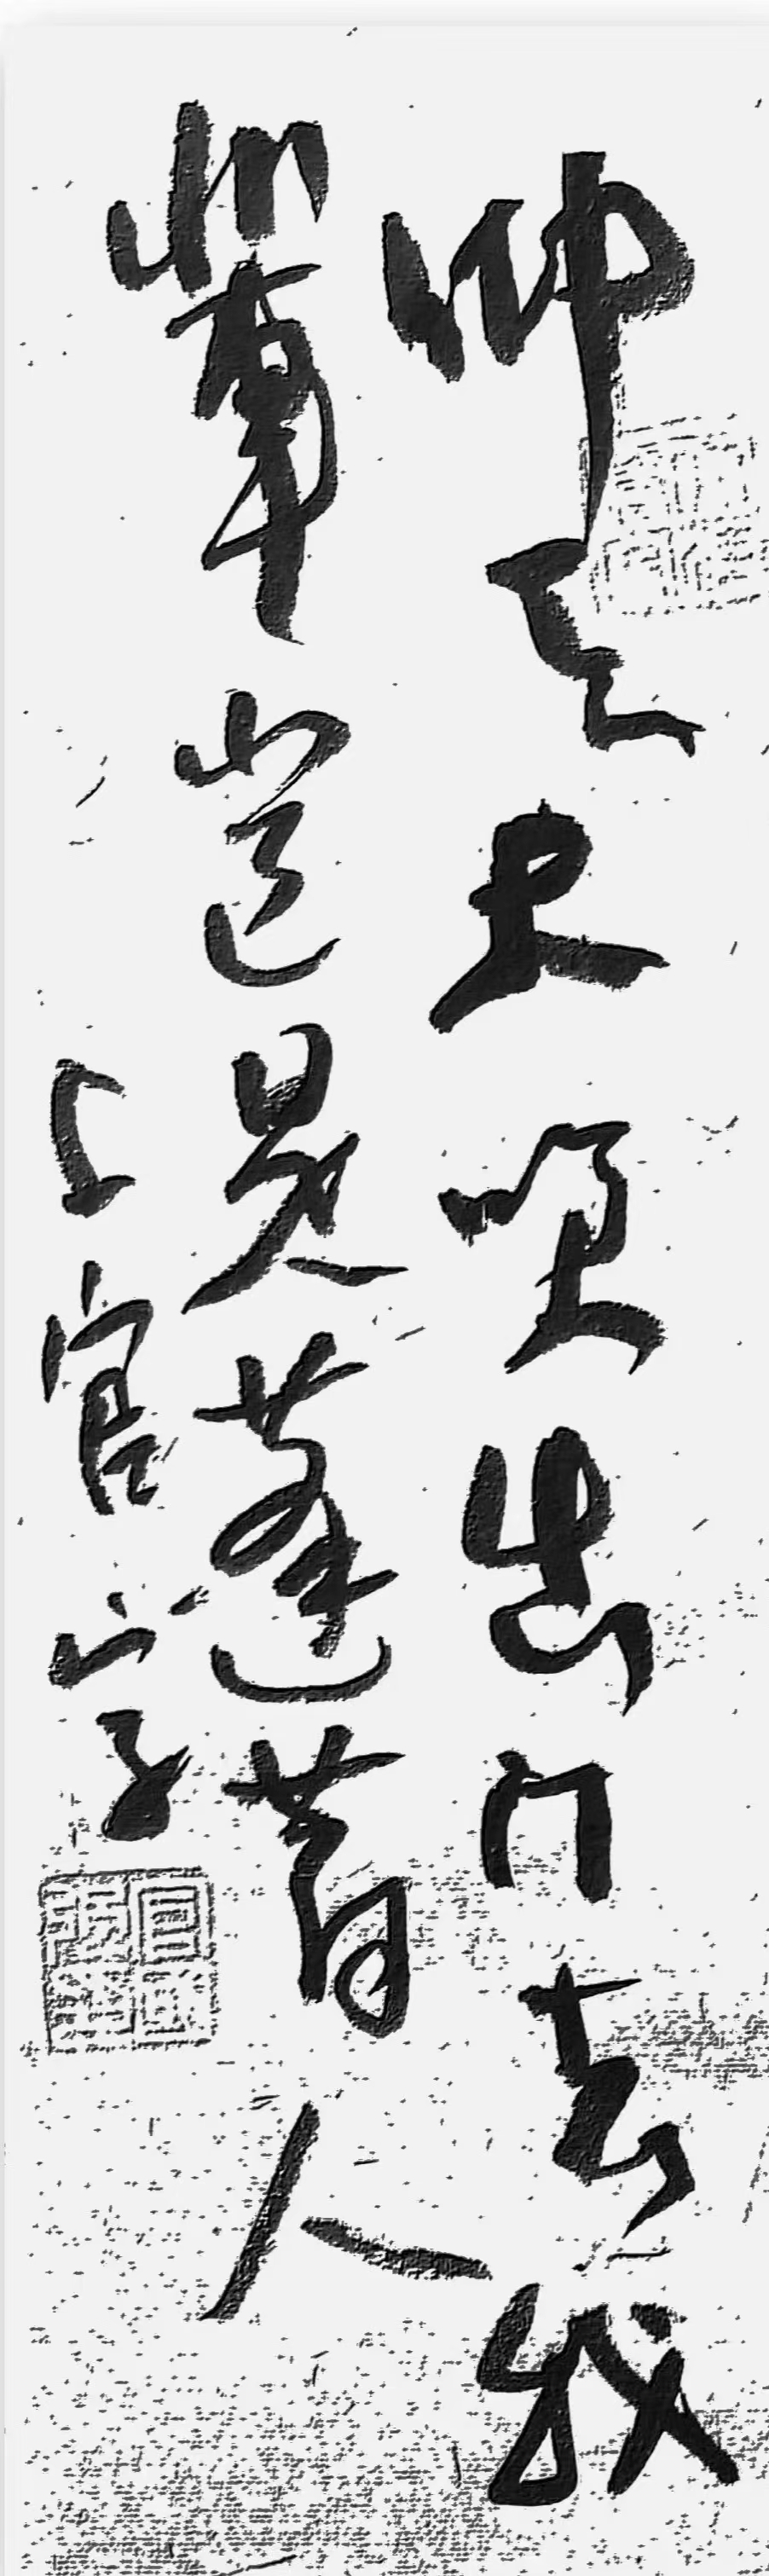 仰天大笑出门去我
辈岂是蓬蒿人
上官